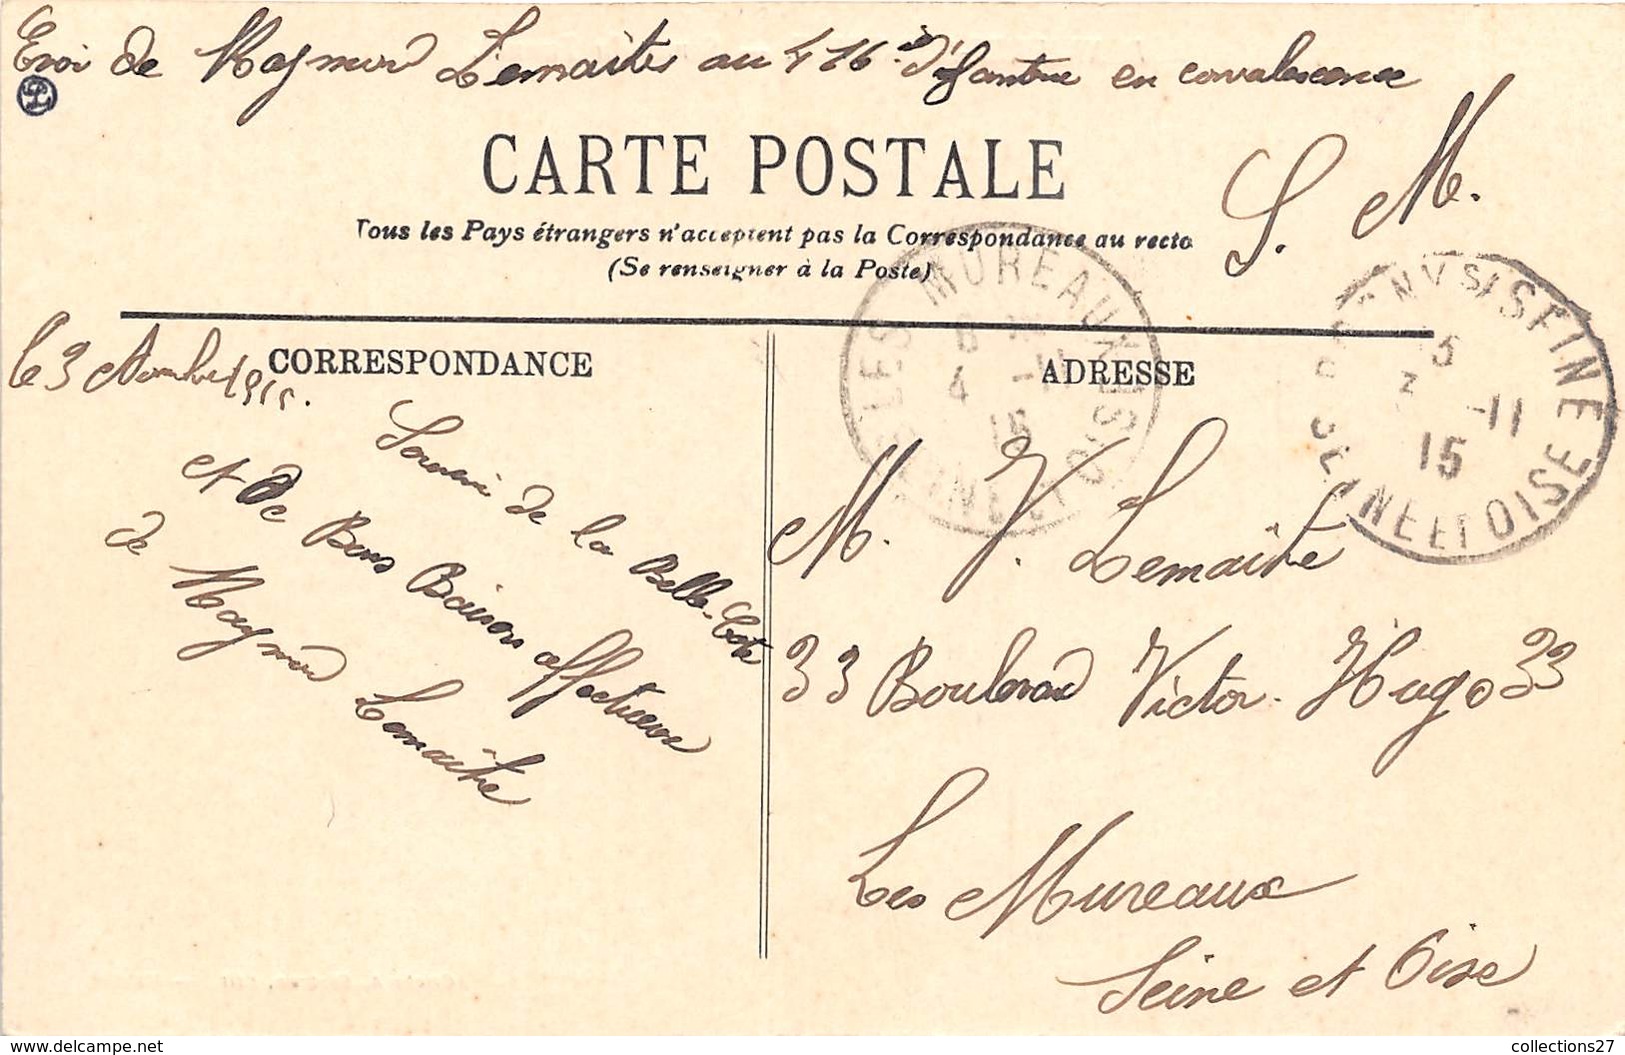 Envoi de Raymond Lemaitre au 416e d'infanterie en convalescence
L
CARTE POSTALE
S. M.
Tous les Pays étrangers n'acceptent pas la Correspondance au recto
(Se renseigner à la Poste)
LES MUREAUX
4 - 11
15
SEINE ET OISE
S/SEINE
5
3 -11
15
SEINE ET OISE
CORRESPONDANCE
le 3 Novembre 1915.
Souvenir de la Belle-Côte
et de Bons Baisers affectueux
de Raymond Lemaitre
ADRESSE
M. V. Lemaitre
33 Boulevard Victor-Hugo 33
Les Mureaux
Seine et Oise
collections27